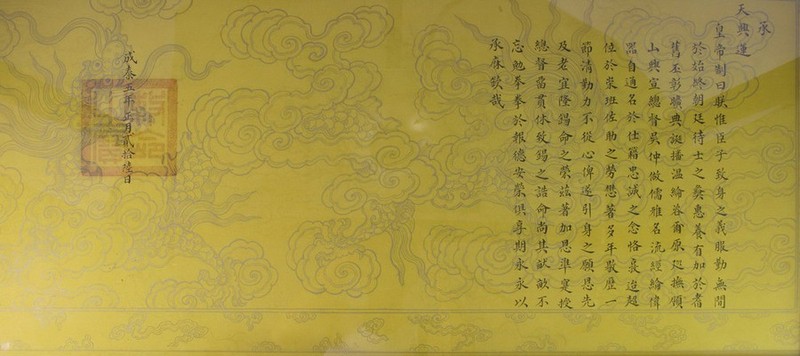 承
天興運
皇帝制曰朕惟臣子致身之義服勤無間
於始終朝廷待士之典惠養有加於耆
舊丕彰曠典誕播溫綸咨爾原延撫領
山興宣總督吳仲儒雅名流經綸偉
器自通名於仕籍忠誠之念恪迨超
位於崇班佐助之勞懋著多年敭歷一
節清勤力不從心俾遂引身之願恩先
及老宜隆錫命之榮茲著加恩準寔授
總督當貫休致錫之誥命尚其猷猷不
忘勉拳拳於報德安榮俱享期永永以
承庥欽哉
成泰五年正月貳拾陸日